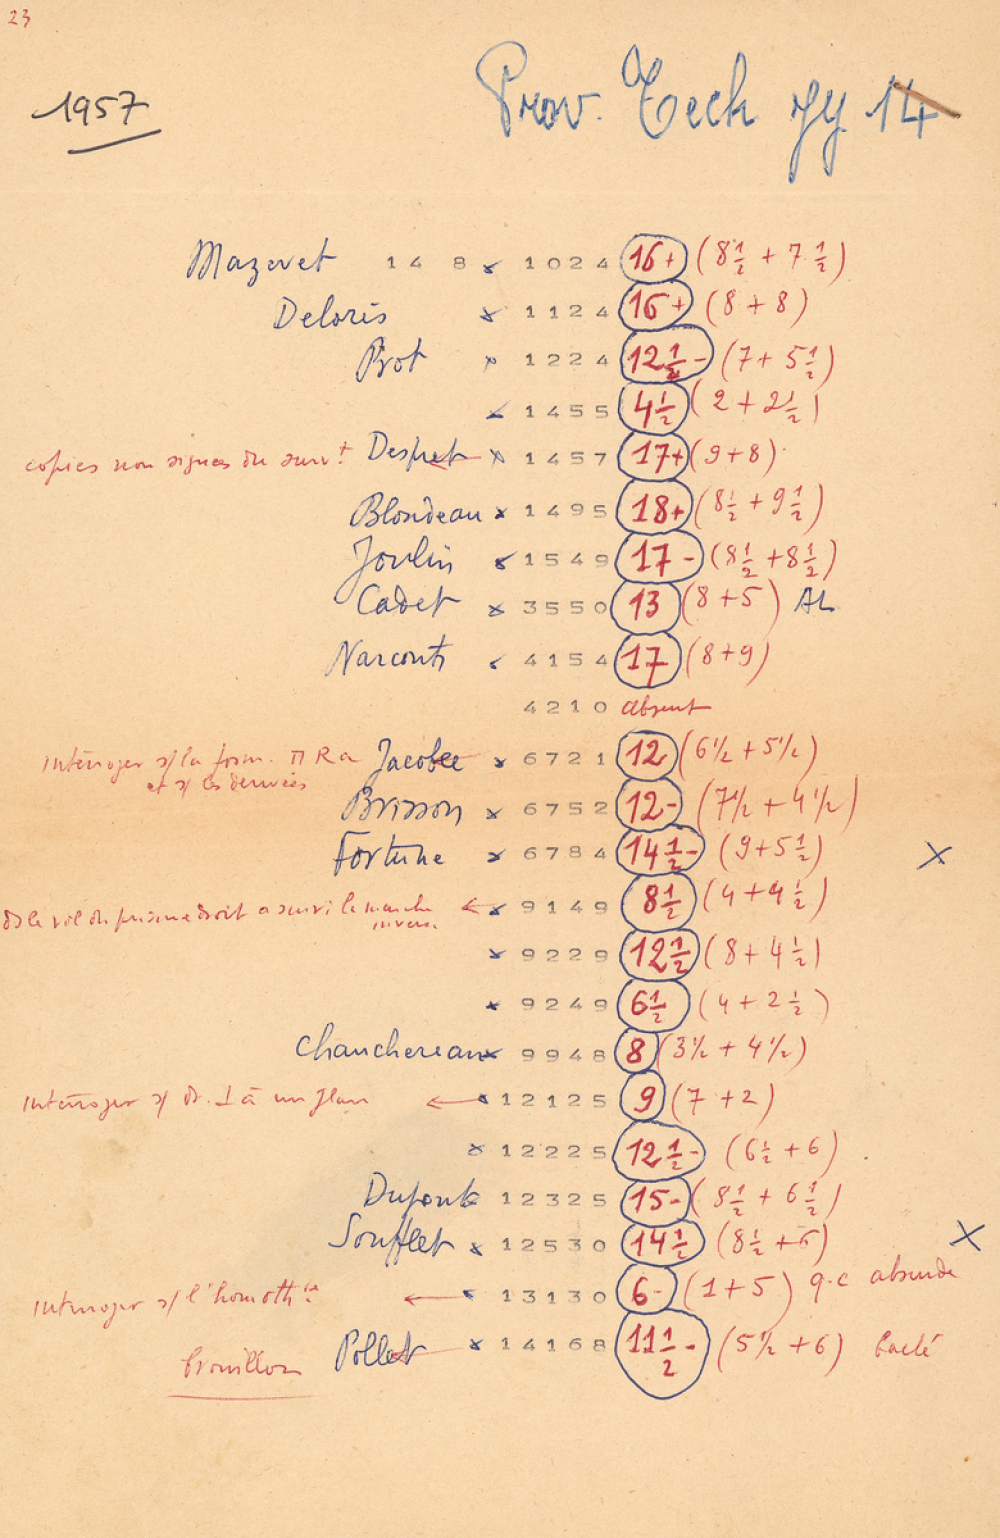 23
1957
Prov. Tech 14
Mazeret 148 x 1024 16+ (8½ + 7½)
Deloris x 1124 16+ (8 + 8)
Prot x 1224 12½- (7 + 5½)
x 1455 4½ (2 + 2½)
copies non signées du surv.t Despret x 1457 17+ (9+8)
Blondeau x 1495 18+ (8½ + 9½)
Joulin x 1549 17- (8½ + 8½)
Cadet x 3550 13 (8+5) AL
Narcont x 4154 17 (8+9)
4210 absent
Interroger s/ la form. π R a Jacobee x 6721 12 (6½ + 5½)
et s/ les dérivées
Brisson x 6752 12- (7½ + 4½)
Fortune x 6784 14½- (9+5½) x
ds le vol du prisme droit a suivi la marche x 9149 8½ (4 + 4½)
inverse
x 9229 12½ (8 + 4½)
x 9249 6½ (4 + 2½)
Chanchereau x 9948 8 (3½ + 4½)
Interroger s/ dr. ⊥ à un plan x 12125 9 (7 + 2)
x 12225 12½- (6½ + 6)
Dupont x 12325 15- (8½ + 6½)
Soufflet x 12530 14½ (8½ + 6) x
Interroger s/ l'homoth.ie 13130 6- (1 + 5) q.c absurde
brouillon Pollet x 14168 11½- (5½ + 6) baclé